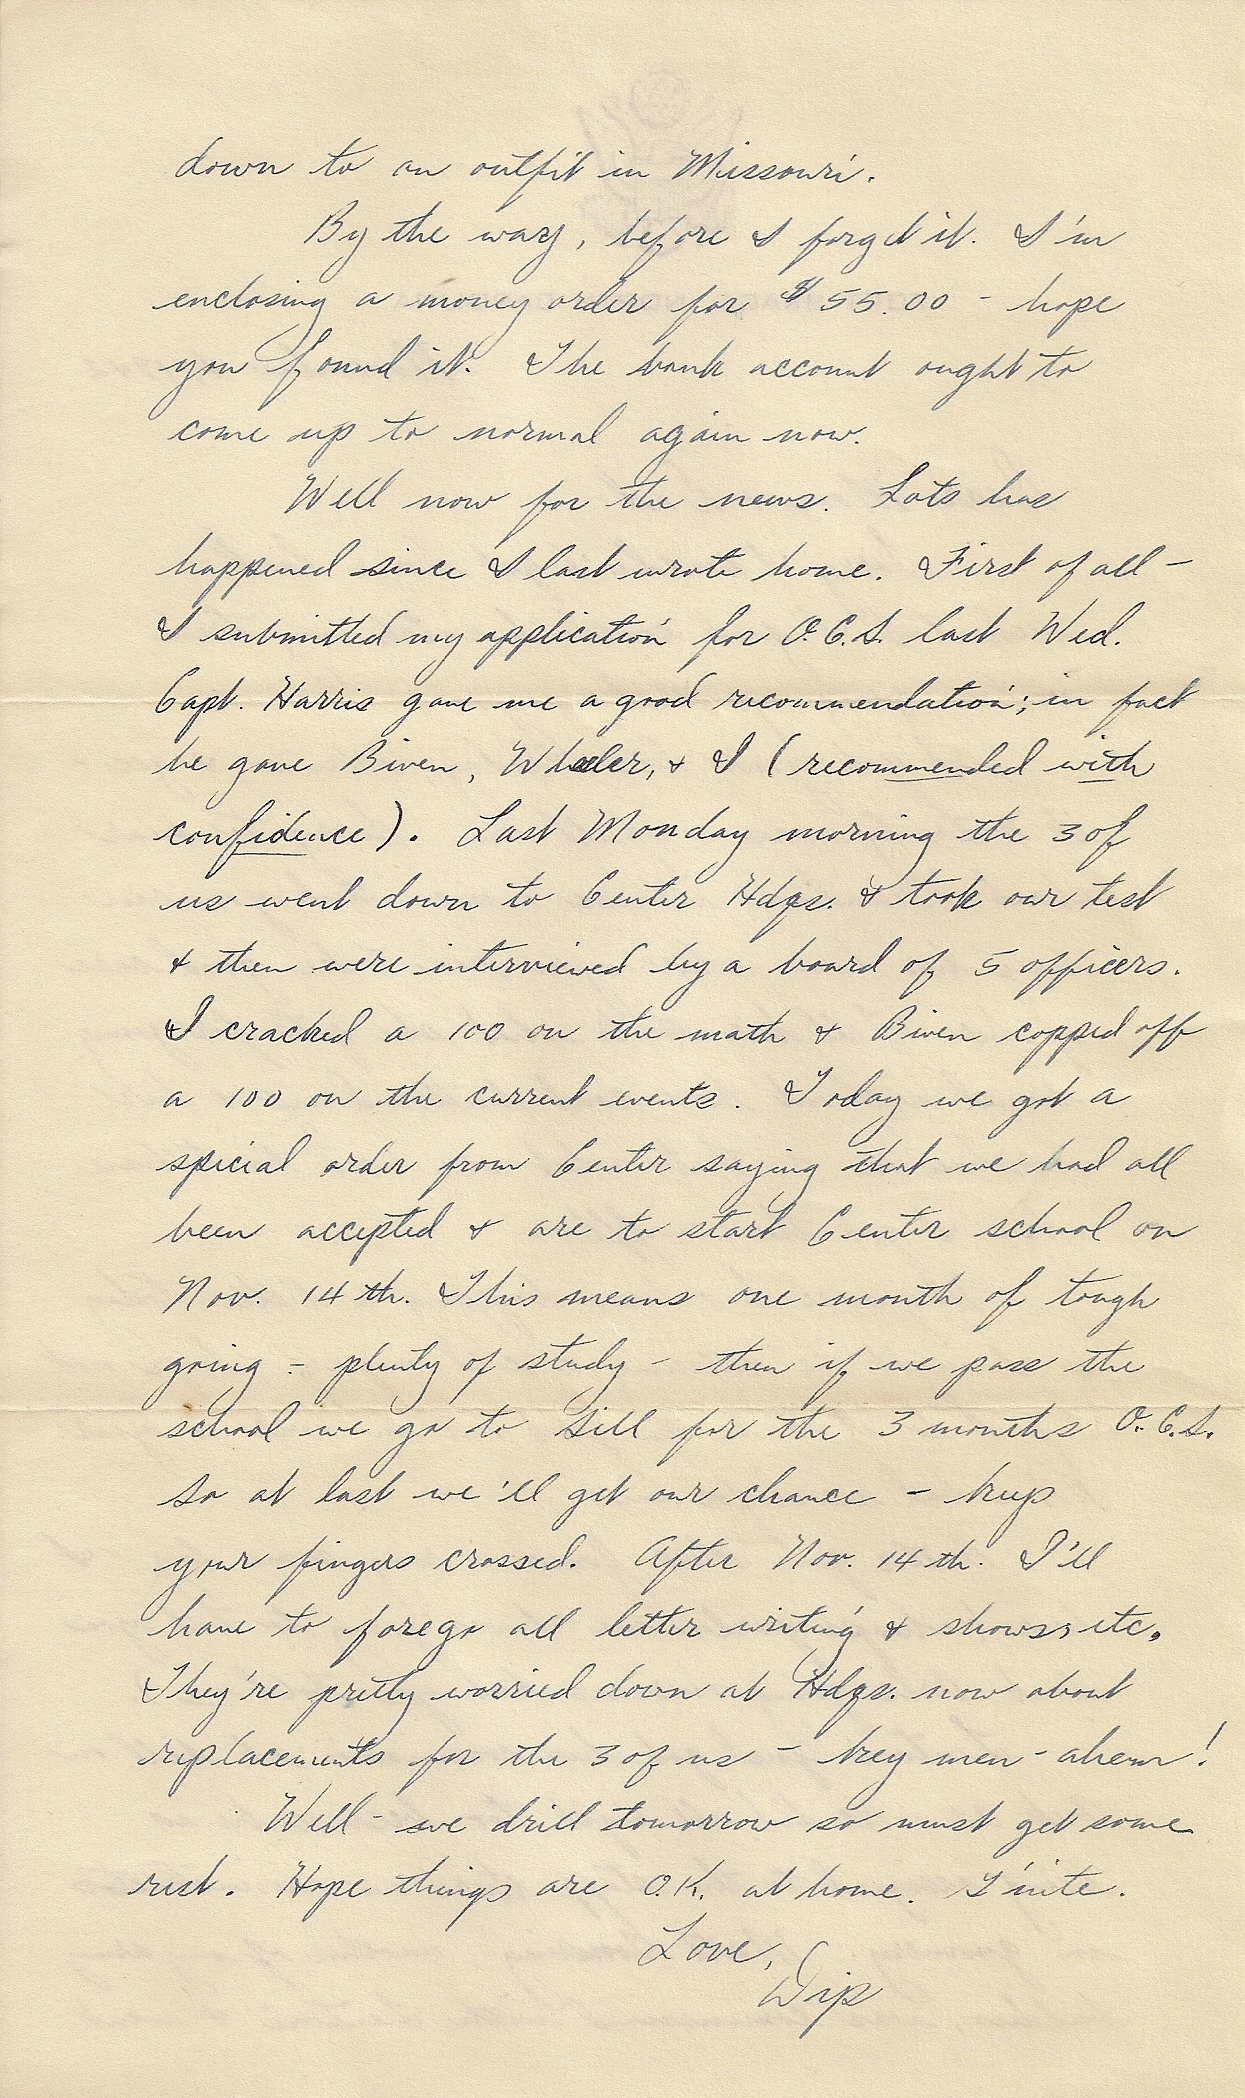 down to an outfit in Missouri.
By the way, before I forget it. I'm
enclosing a money order for $55.00 - hope
you found it. The bank account ought to
come up to normal again now.
Well now for the news. Lots has
happened since I last wrote home. First of all -
I submitted my application for O.C.S. last Wed.
Capt. Harris gave me a good recommendation; in fact
he gave Biven, Wheeler, & I (recommended with
confidence). Last Monday morning the 3 of
us went down to Center Hdqs. & took our test
& then were interviewed by a board of 5 officers.
I cracked a 100 on the math & Biven copped off
a 100 on the current events. Today we got a
special order from Center saying that we had all
been accepted & are to start Center school on
Nov. 14th. This means one month of tough
going - plenty of study - then if we pass the
school we go to Sill for the 3 months O.C.S.
So at last we'll get our chance - keep
your fingers crossed. After Nov. 14th. I'll
have to forego all letter writing & shows, etc.
They're pretty worried down at Hdqs. now about
replacements for the 3 of us - key men - ahem!
Well - we drill tomorrow so must get some
rest. Hope things are O.K. at home. G'nite.
Love,
Dip